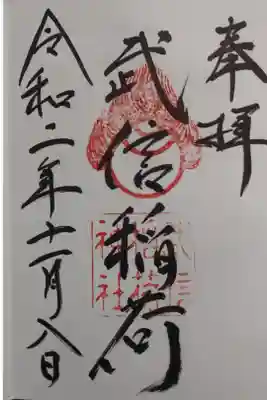 奉拝
武信稲荷
令和二年十一月八日